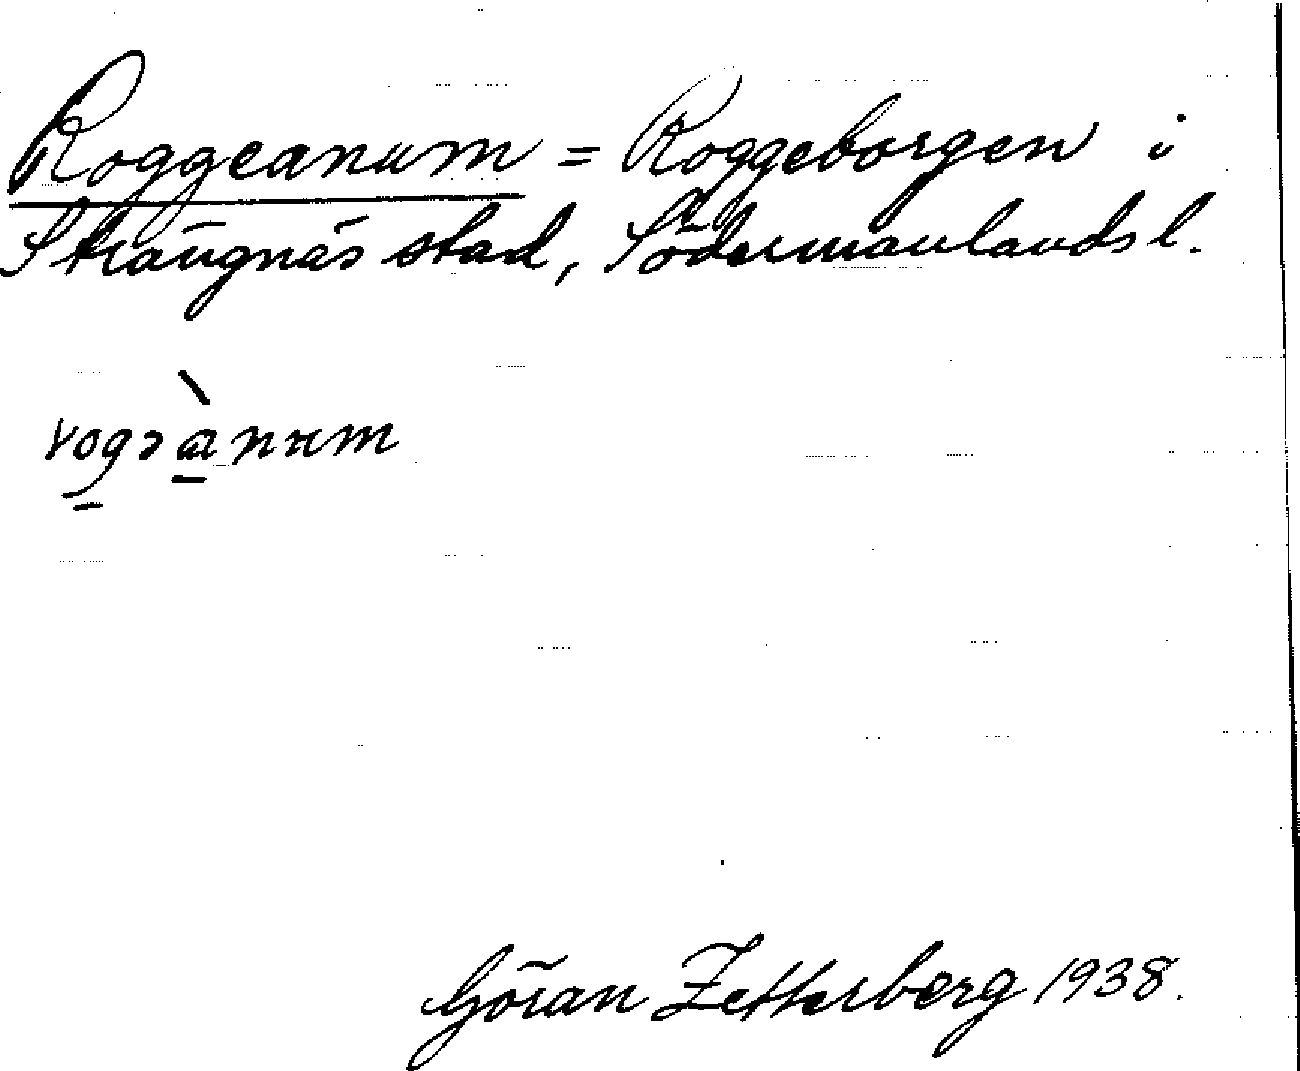 Roggeanum = Roggeborgen i
Strängnäs stad, Södermanlands l.
rogɔànum
Göran Zetterberg 1938.